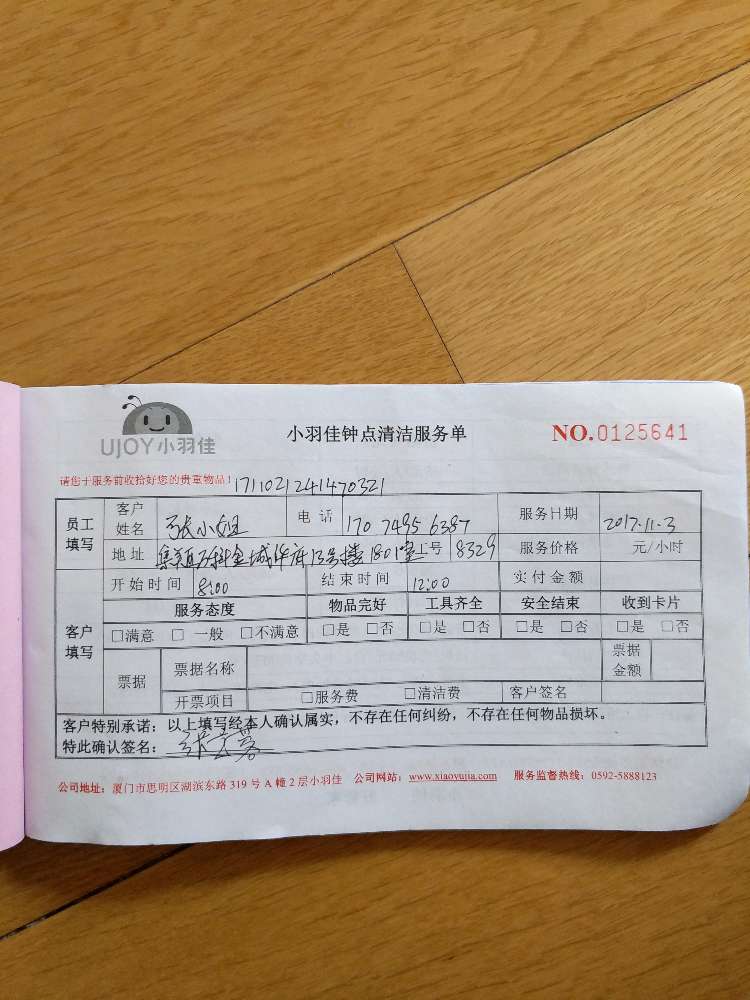 UJOY小羽佳
小羽佳钟点清洁服务单
NO.0125641
请您于服务前收拾好您的贵重物品！1711021241470321
员工填写 客户姓名 张小姐 电话 170 7495 6387 服务日期 2017.11.3
地址 集美万科金域华府13号楼1801室 工号 8329 服务价格 元/小时
客户填写 开始时间 8:00 结束时间 12:00 实付金额
服务态度 物品完好 工具齐全 安全结束 收到卡片
□满意 □一般 □不满意 □是 □否 □是 □否 □是 □否 □是 □否
票据 票据名称 票据金额
开票项目 □服务费 □清洁费 客户签名
客户特别承诺：以上填写经本人确认属实，不存在任何纠纷，不存在任何物品损坏。
特此确认签名：
公司地址：厦门市思明区湖滨东路 319 号 A 幢 2 层小羽佳 公司网站：www.xiaoyujia.com 服务监督热线：0592-5888123